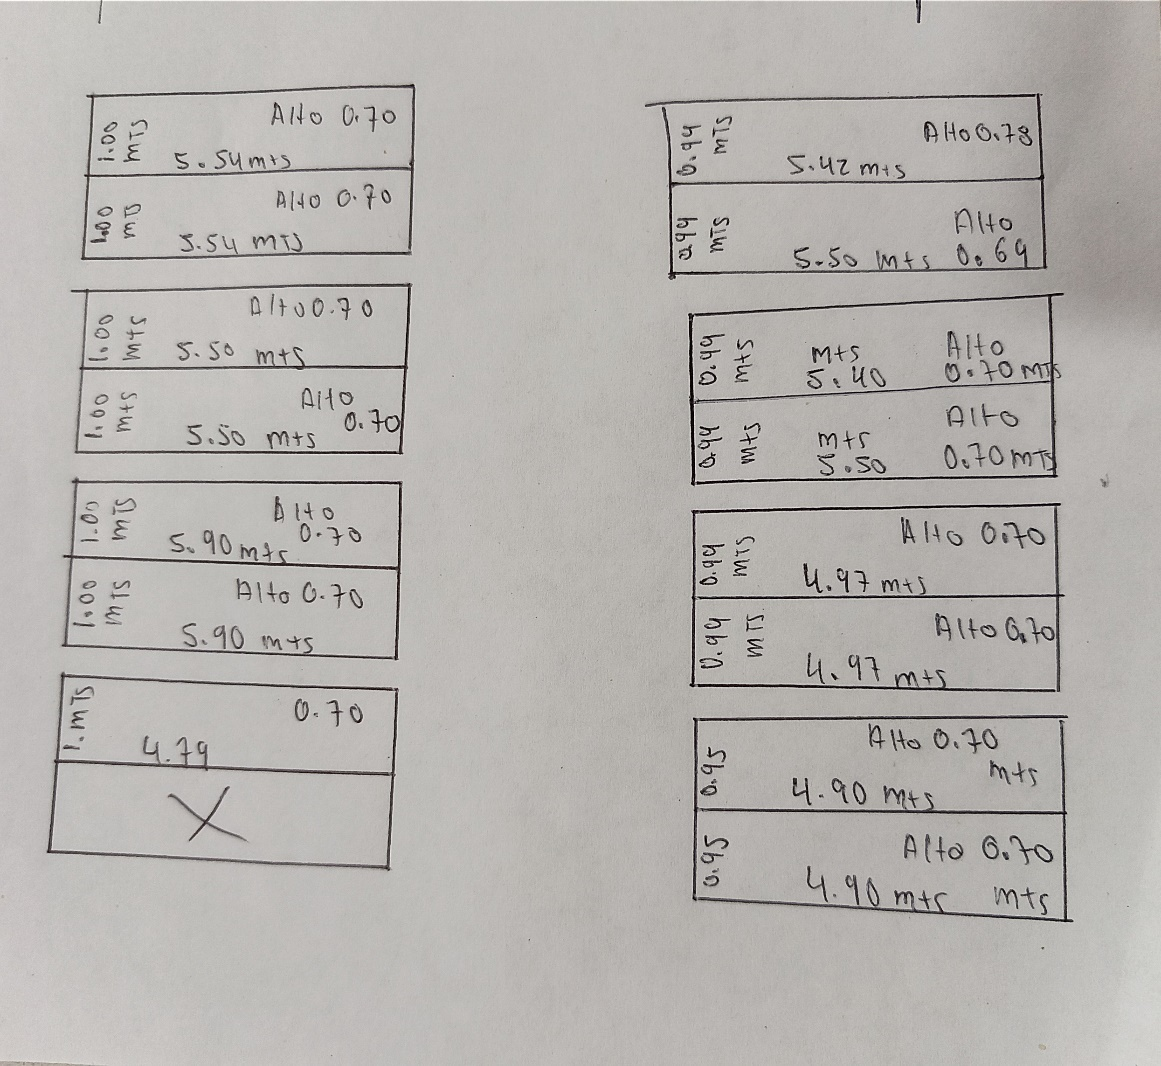 1.00 mts
Alto 0.70
5.54 mts
1.00 mts
Alto 0.70
5.54 mts
1.00 mts
Alto 0.70
5.50 mts
1.00 mts
Alto
0.70
5.50 mts
1.00 mts
Alto
0.70
5.90 mts
1.00 mts
Alto 0.70
5.90 mts
1. mts
0.70
4.79
X
0.94 mts
Alto 0.78
5.42 mts
0.94 mts
Alto
5.50 mts 0.69
0.99 mts
mts Alto
5.40 0.70 mts
0.94 mts
Alto
mts
5.50 0.70 mts
0.94 mts
Alto 0.70
4.97 mts
0.94 mts
Alto 0.70
4.97 mts
0.95
Alto 0.70
mts
4.90 mts
0.95
Alto 0.70
4.90 mts mts